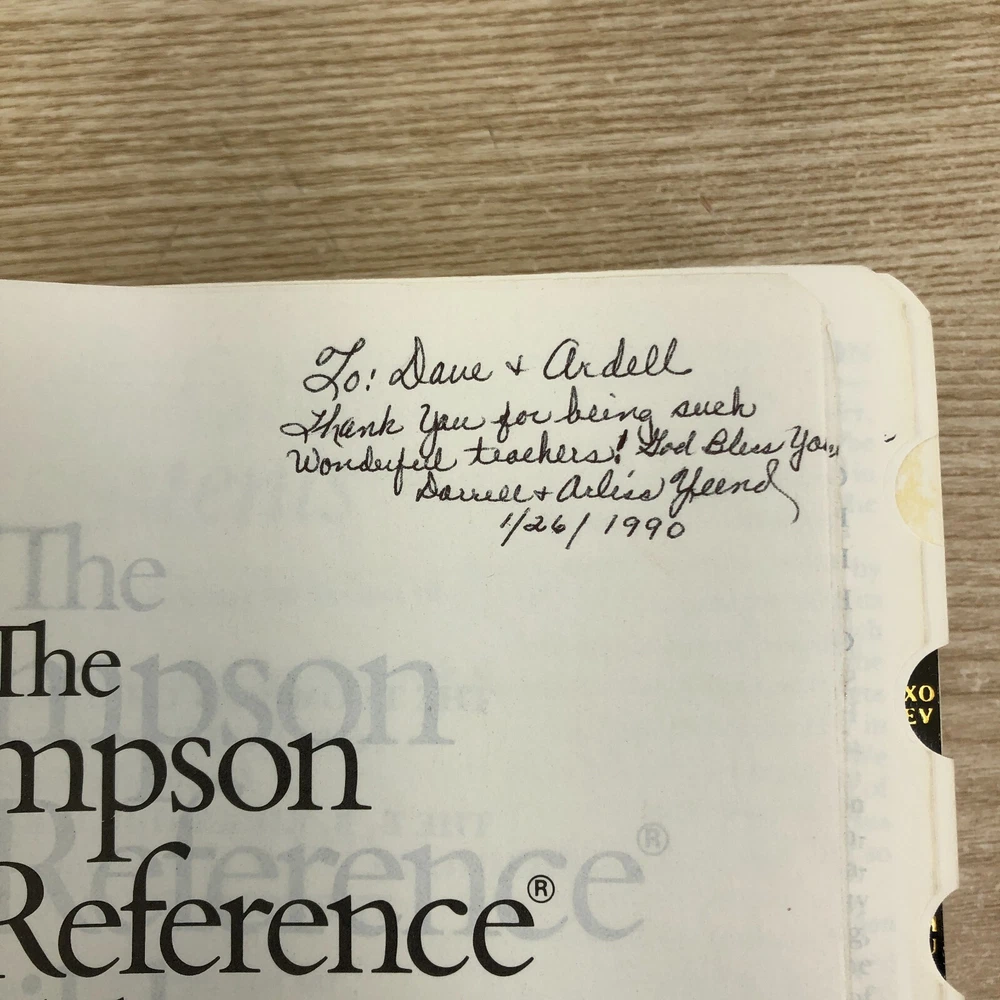 To: Dave + Ardell
Thank You for being such
Wonderful teachers! God Bless You,
Darrell + Arliss Yeend
1/26/1990
The
The
mpson
mpson
Reference®
Reference®
XO
EV